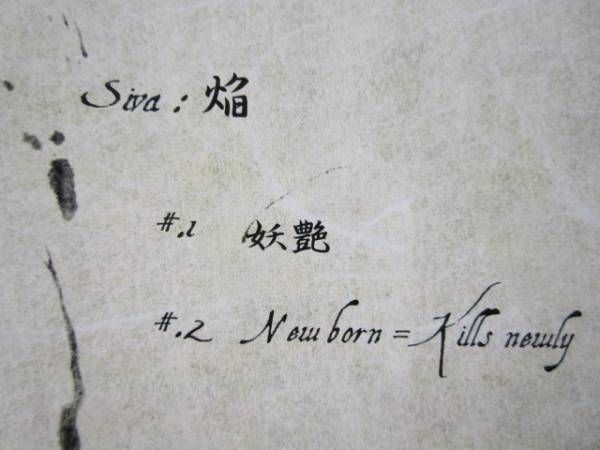 Siva : 焔
#.1 妖艶
#.2 New born = Kills newly